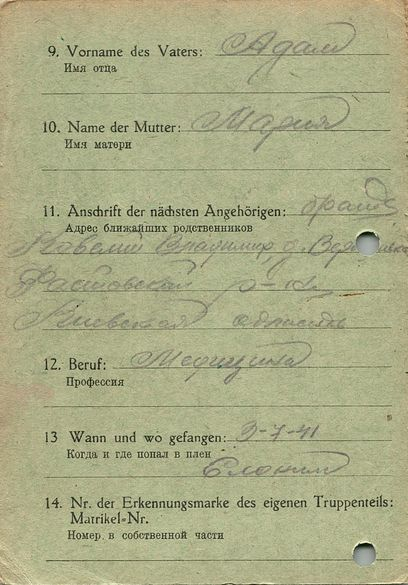 9. Vorname des Vaters: Адам
Имя отца
10. Name der Mutter: Мария
Имя матери
11. Anschrift der nächsten Angehörigen:
Адрес ближайших родственников
Владимир д.
Фастовский р-он
Киевская область
12. Beruf: Медицина
Профессия
13 Wann und wo gefangen: 3-7-41
Когда и где попал в плен
Слоним
14. Nr. der Erkennungsmarke des eigenen Truppenteils:
Matrikel-Nr.
Номер в собственной части